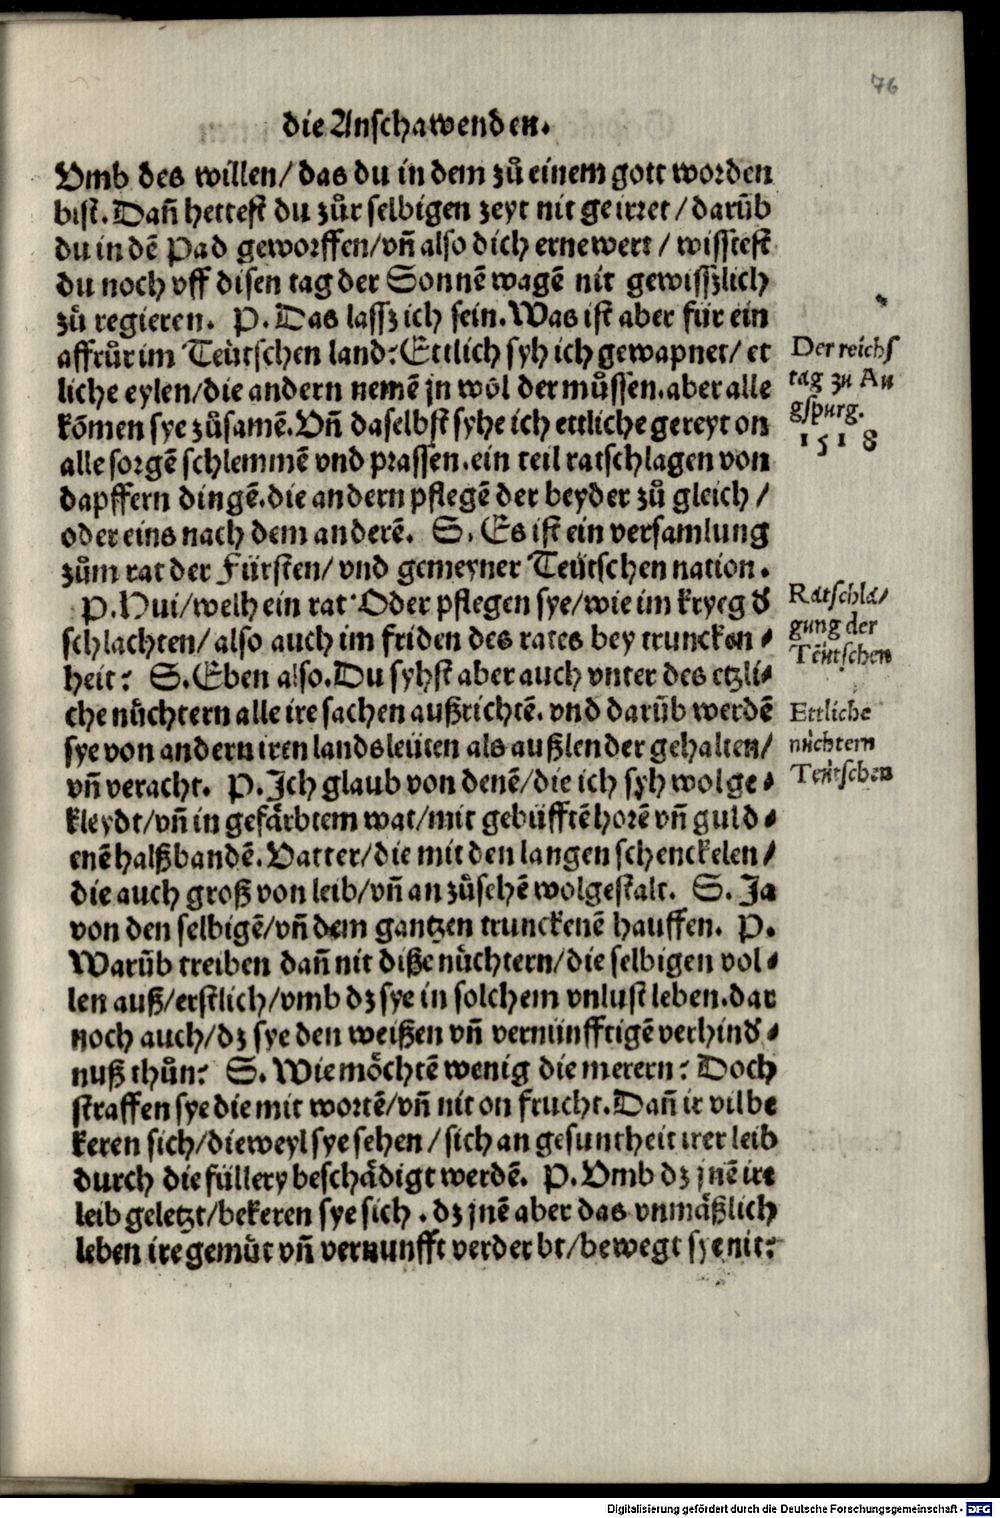 76
die Anschawenden.
Vmb des willen/ das du in dem zů einem gott worden
bist. Dañ hettest du zůr selbigen zeyt nit geirret/ darũb
du in dẽ Pad geworffen/ vñ also dich ernewert/ wisstest
du noch vff disen tag der Sonnẽ wagẽ nit gewisszlich
zů regieren. P. Das lassz ich sein. Was ist aber für ein
affrůr im Teütschen land: Ettlich syh ich gewapnet/ et
liche eylen/ die andern nemẽ jn wol der můssen. aber alle
kõmen sye zůsamẽ. Vñ daselbst syhe ich ettliche gereyt on
alle sorgẽ schlemmẽ vnd prassen. ein teil ratschlagen von
dapffern dingẽ. die andern pflegẽ der beyder zů gleich/
oder eins nach dem anderẽ. S. Es ist ein versamlung
zům rat der Fürsten/ vnd gemeyner Teütschen nation.
P. Hui/ welh ein rat. Oder pflegen sye/ wie im kryeg d̕
schlachten/ also auch im friden des rates bey truncken⸗
heit: S. Eben also. Du syhst aber auch vnter des etzli⸗
che nüchtern alle ire sachen außrichtẽ. vnd darũb werdẽ
sye von andern iren landsleüten als außlender gehalten/
vñ veracht. P. Ich glaub von denẽ/ die ich syh wolge⸗
kleydt/ vñ in gefärbtem wat/ mit gebüfftẽ horẽ vñ guld⸗
enẽ halßbandẽ. Vatter/ die mit den langen schenckelen/
die auch groß von leib/ vñ an zůsehẽ wolgestalt. S. Ja
von den selbigẽ/ vñ dem gantzen trunckenẽ hauffen. P.
Warũb treiben dañ nit diße nüchtern/ die selbigen vol⸗
len auß/ erstlich/ vmb dz sye in solchem vnlust leben. dar
noch auch/ dz sye den weißen vñ vernünfftigẽ verhind̕⸗
nuß thůn: S. Wie möchtẽ wenig die merern: Doch
straffen sye die mit wortẽ/ vñ nit on frucht. Dañ ir vil be
keren sich/ dieweyl sye sehen/ sich an gesuntheit irer leib
durch die füllery beschädigt werdẽ. P. Vmb dz jnẽ ire
leib geletzt/ bekeren sye sich. dz jnẽ aber das vnmäßlich
leben ire gemüt vñ vernunfft verderbt/ bewegt sye nit:
Der reichs
tag zu Au
gspurg.
1518
Ratschla/
gung der
Teütschen
Ettliche
nüchtern
Teütschen
Digitalisierung gefördert durch die Deutsche Forschungsgemeinschaft - DFG